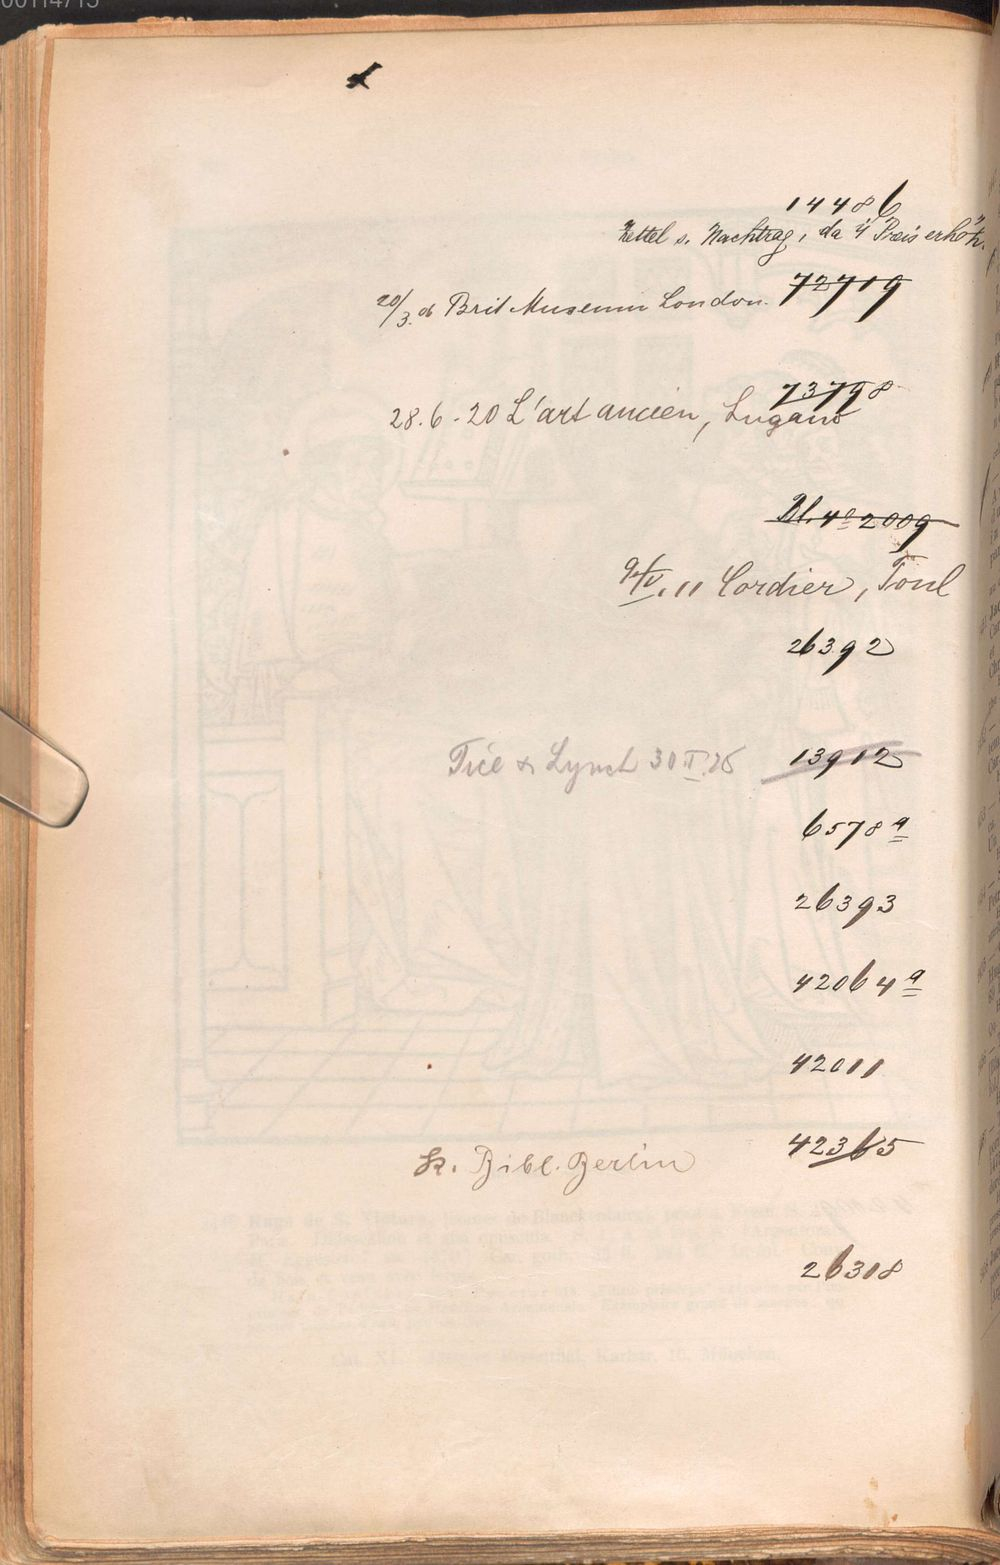 14486
Zettel s. Nachtrag, da 4 Preis erhöh.
20/3. 06 Brit Museum London. 72719
73798
28.6.20 L'art ancien, Lugano
Bl. 4º 2009
9/IV. 11 Cordier, Toul
26392
Tice & Lynch 30 II. 26 13912
6578a
26393
42064a
42011
42365
K. Bibl. Berlin
26318